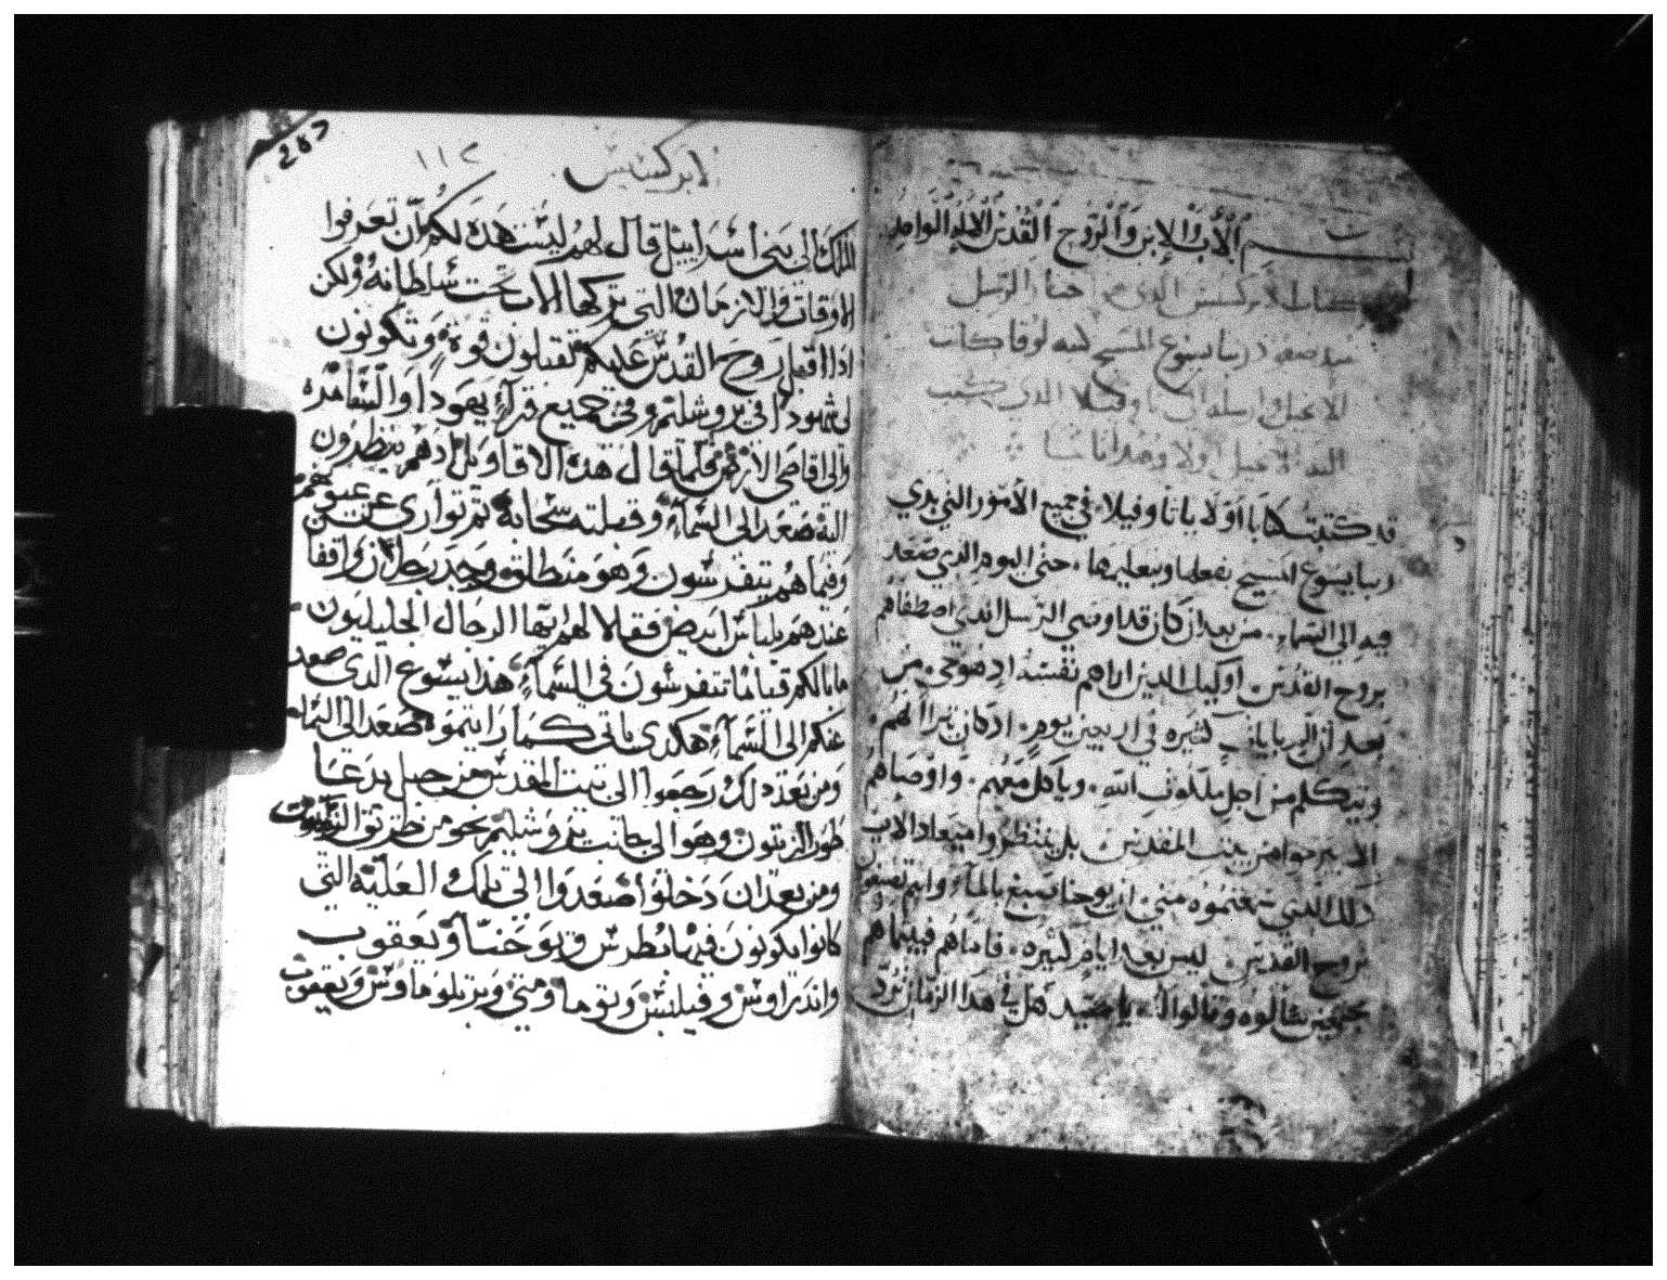 بسم الأب والإبن والروح القدس الإله الواحد
كتاب الابركسس الذي اخبار الرسل
صعود ربنا يسوع المسيح كتبه لوقا كاتب
الانجيل وارسله الى تاوفيلا الذي كتب
اليه الانجيل اولا وهدا
قد كتبت كتابا اولا يا تاوفيلا في جميع الأمور التي بدي
ربنا يسوع المسيح بفعلها وبتعليمها حتى اليوم الذي صعد
فيه الي السماء من بعد ان كان قد اوصي الرسل الذي اصطفاهم
بروح القدس اوليك الدين اراهم نفسه اد هو حي من
بعد ان الم باياتٍ كثيره في اربعين يوم اد كان يترا الهم
ويتكلم من اجل ملكوت الله وياكل معهم واوصاهم
الا يبرحوا من بيت المقدس بل ينتظروا ميعاد الاب
ذلك الذي سمعتموه مني ان يوحنا صبغ بالماء وانتم تصبغون
بروح القدس ليس بعد ايام كثيره فاما هم فبينما هم
مجتمعين سالوه وقالوا له يا سيد هل في هدا الزمان ترد
267
الابركسيس ١١٢
الملك الى بني اسراييل قال لهم ليست هده لكم ان تعرفوا
الاوقات والازمان التي تركها الاب تحت سلطانه ولكن
ادا اقبل روح القدس عليكم تقبلون قوة وتكونون
لي شهودا في يروشليم وفي جميع قرآء يهودا والسامره
والى اقاصي الارض فلما قال هده الاقاويل اد هم ينظرون
اليه صعد الى السمآء وقبلته سحابة ثم توارى عن عيونهم
وفيما هم يتفرسون وهو منطلق وجد رجلان واقفا
عندهم بلباس ابيض فقالا لهم ايها الرجال الجليليون
ما بالكم قياما تتفرسون في السمآء هذا يسوع الدي صعد
عنكم الى السمآء هكدى ياتى كما رايتموه صعد الى السما
ومن بعد دلك رجعوا الى بيت المقدس من جبل يدعا
طور الزيتون وهو الى جانب يروشليم نحو من طريق السبوت
ومن بعد ان دخلوا صعدوا الى تلك العليه التي
كانوا يكونون فيها بطرس ويوحنا ويعقوب
واندراوس وفيلبس وتوما ومتي وبرتلوماوس ويعقوب